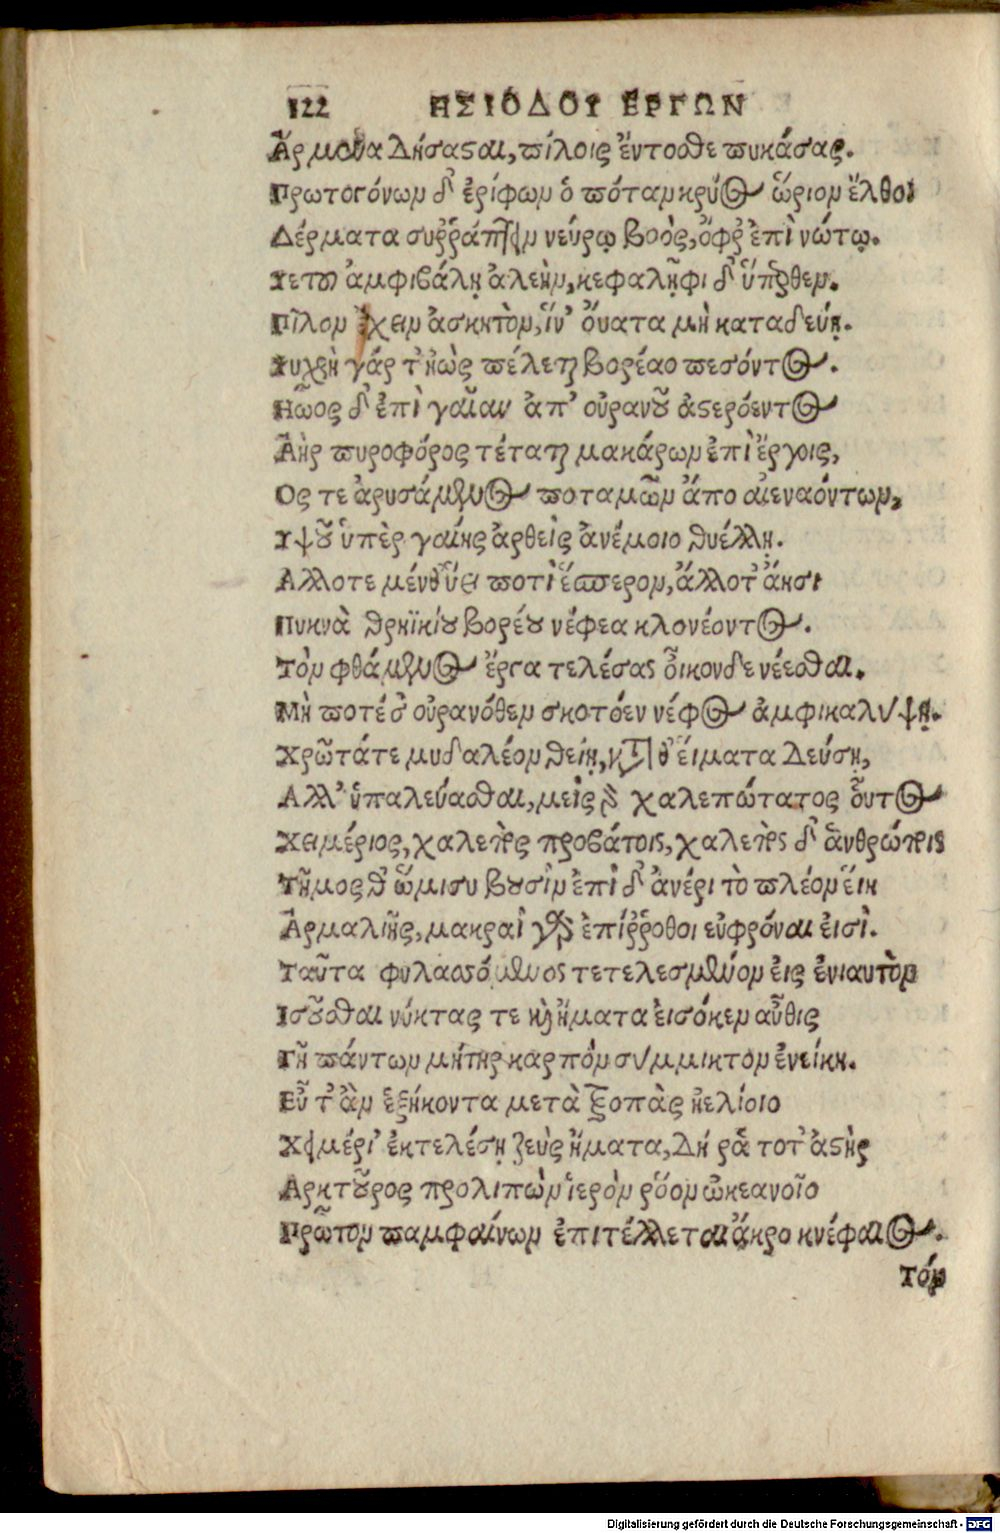 122 ΗΣΙΟΔΟΥ ΕΡΓΩΝ
Ἄρμενα δήσασθαι, πίλοις ἔντοσθε πυκάσας.
Πρωτογόνων δ' ἐρίφων ὁπόταν κρύος ὥριον ἔλθοι
Δέρματα συῤῥάπτειν νεύρῳ βοὸς, ὄφρ' ἐπὶ νώτῳ.
Ὑετοῦ ἀμφιβάλῃ ἀλεὴν, κεφαλῆφι δ' ὕπερθεν.
Πῖλον ἔχειν ἀσκητὸν, ἵν' ὄυατα μὴ καταδεύῃ.
Ψυχρὴ γάρ τ' ἠὼς πέλεται βορέαο πεσόντος.
Ηῶος δ' ἐπὶ γαῖαν ἀπ' οὐρανοῦ ἀστερόεντος
Ἀὴρ πυροφόρος τέταται μακάρων ἐπὶ ἔργοις,
Ος τε ἀρυσάμενος ποταμῶν ἄπο αἰεναόντων,
Υψοῦ ὑπὲρ γαίης ἀρθεὶς ἀνέμοιο θυέλλῃ.
Αλλοτε μένθ' ὕει ποτὶ ἕσπερον, ἄλλοτ' ἄησι
Πυκνὰ θρηϊκίου βορέου νέφεα κλονέοντος.
Τὸν φθάμενος ἔργα τελέσας οἶκονδε νέεσθαι.
Μὴ ποτέ σ' οὐρανόθεν σκοτόεν νέφος ἀμφικαλύψῃ.
Χρῶτάτε μυδαλέον θείῃ, κατά θ' εἵματα δεύσῃ,
Αλλ' ὑπαλεύασθαι, μεὶς γὰρ χαλεπώτατος οὗτος
Χειμέριος, χαλεπὸς προβάτοις, χαλεπὸς δ' ἀνθρώποις
Τῆμος θ' ὥμισυ βουσὶν ἐπὶ δ' ἀνέρι τὸ πλέον εἴη
Ἁρμαλιῆς, μακραὶ γὰρ ἐπίῤῥοθοι εὐφρόναι εἰσὶ.
Ταῦτα φυλασσόμενος τετελεσμένον εἰς ἐνιαυτὸν
Ισοῦσθαι νύκτας τε καὶ ἤματα εἰσόκεν αὖθις
Γῆ πάντων μήτηρ καρπὸν σύμμικτον ἐνείκη.
Εὖ τ' ἂν ἑξήκοντα μετὰ τροπὰς ἠελίοιο
Χειμέρι' ἐκτελέσῃ ζεὺς ἤματα, δή ῥά τοτ' ἀστὴρ
Αρκτοῦρος προλιπὼν ἱερὸν ῥόον ὠκεανοῖο
Πρῶτον παμφαίνων ἐπιτέλλεται ἄκρο κνέφαιος.
Τόν
Digitalisierung gefördert durch die Deutsche Forschungsgemeinschaft - DFG